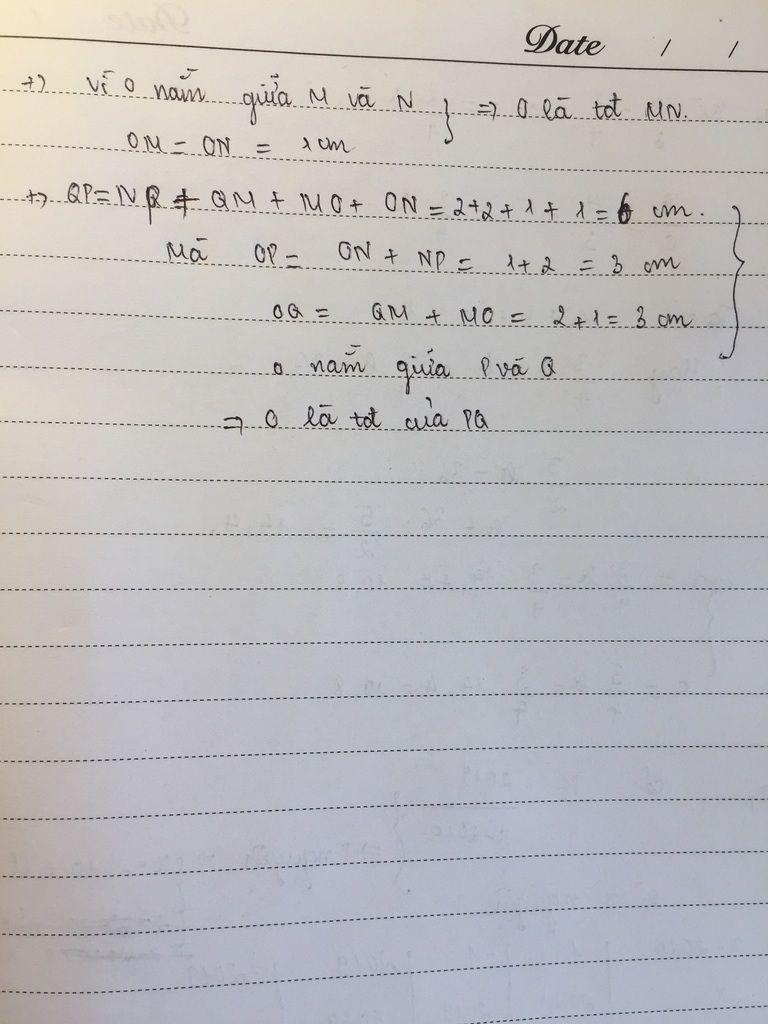 Date / /
+) Vì O nằm giữa M và N } => O là tđt MN.
OM = ON = 1 cm
+) QP = NP + QM + MO + ON = 2+2+1+1 = 6 cm.
Mà OP = ON + NP = 1+2 = 3 cm
OQ = QM + MO = 2+1 = 3 cm }
O nằm giữa P và Q
=> O là tđt của PQ